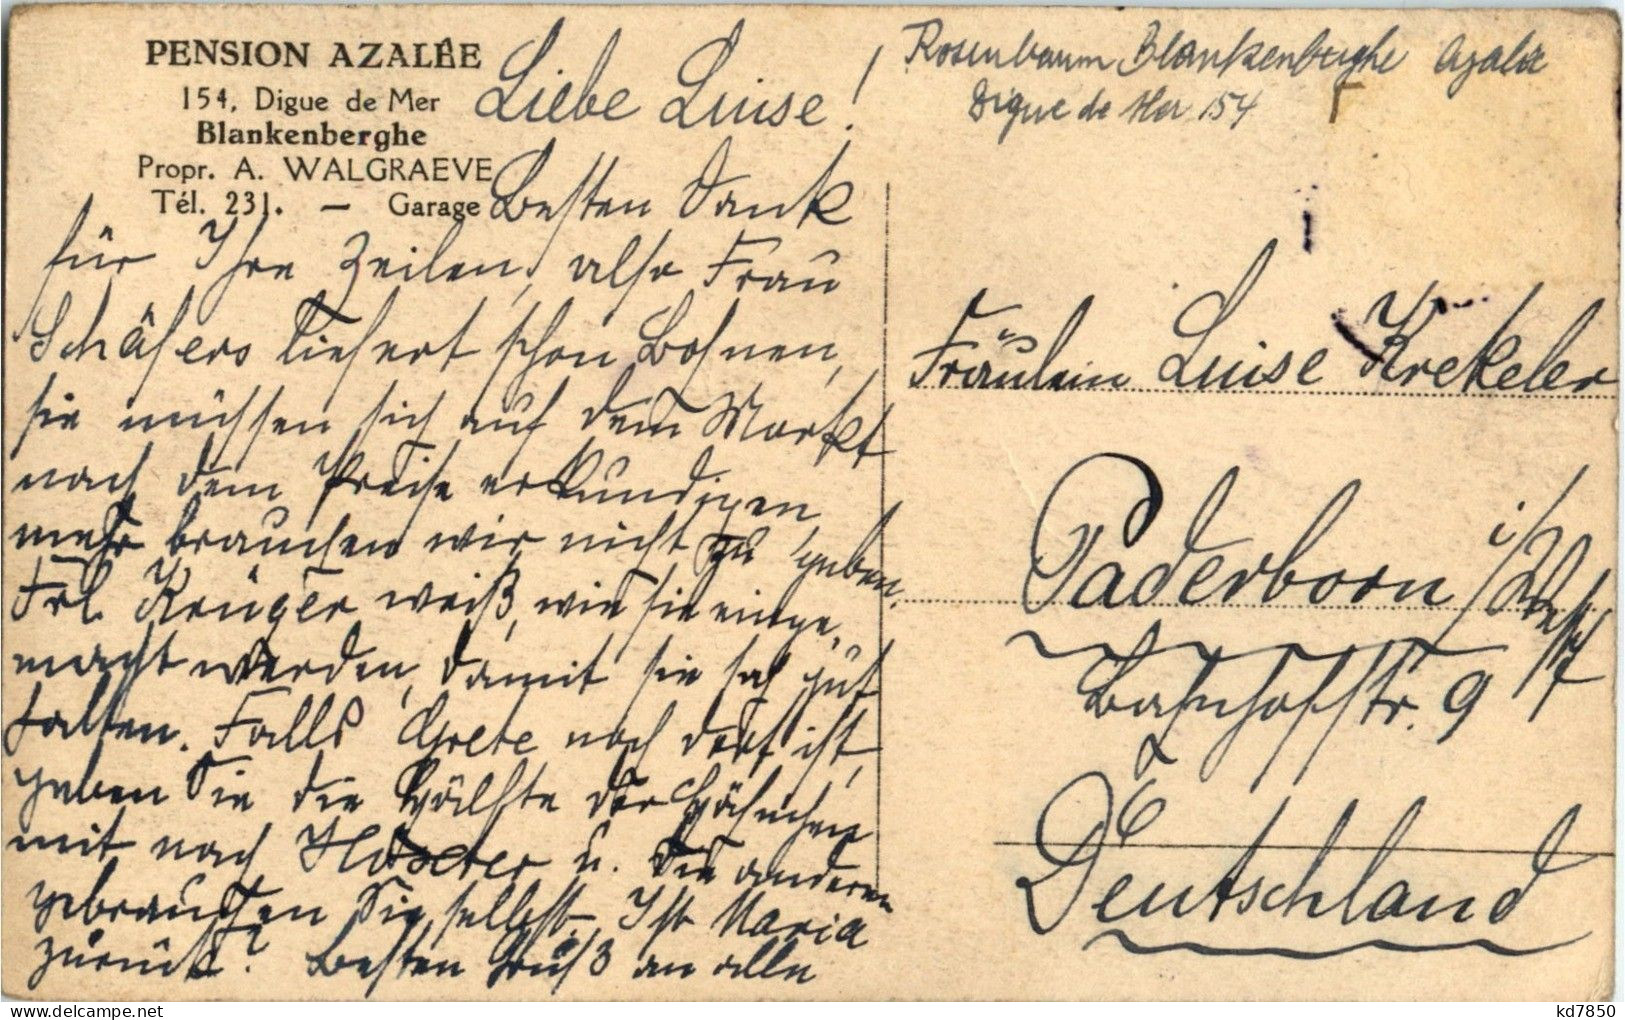 PENSION AZALÉE
154, Digue de Mer
Blankenberghe
Propr. A. WALGRAEVE
Tél. 231. — Garage
Liebe Luise!
Besten Dank
für Ihre Zeilen, also Frau
Schäfers liefert schon Bohnen,
sie müssen sich auf dem Markt
nach dem Preise erkundigen,
mehr brauchen wir nicht zu geben.
Frl. Krüger weiß, wie sie einge-
macht werden, damit sie sich gut
halten. Falls Grete noch dort ist,
geben Sie die Hälfte der Hähnchen
mit nach Höxter u. die anderen
gebrauchen Sie selbst. Ist Maria
zurück? Besten Gruß an alle
Rosenbaum Blankenberghe Azalée
Digue de Mer 154
Fräulein Luise Krekeler
Paderborn i/Westf
Bahnhofstr. 9
Deutschland
kd7850